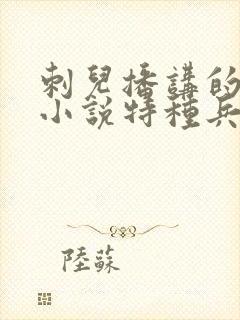 刺兒播講的
小說特種兵
陸蘇